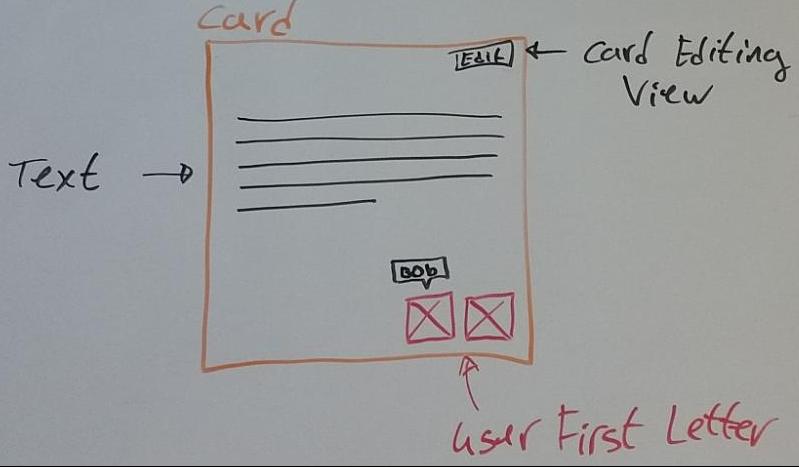 Card
Edit
Card Editing
View
Text
Bob
User First Letter